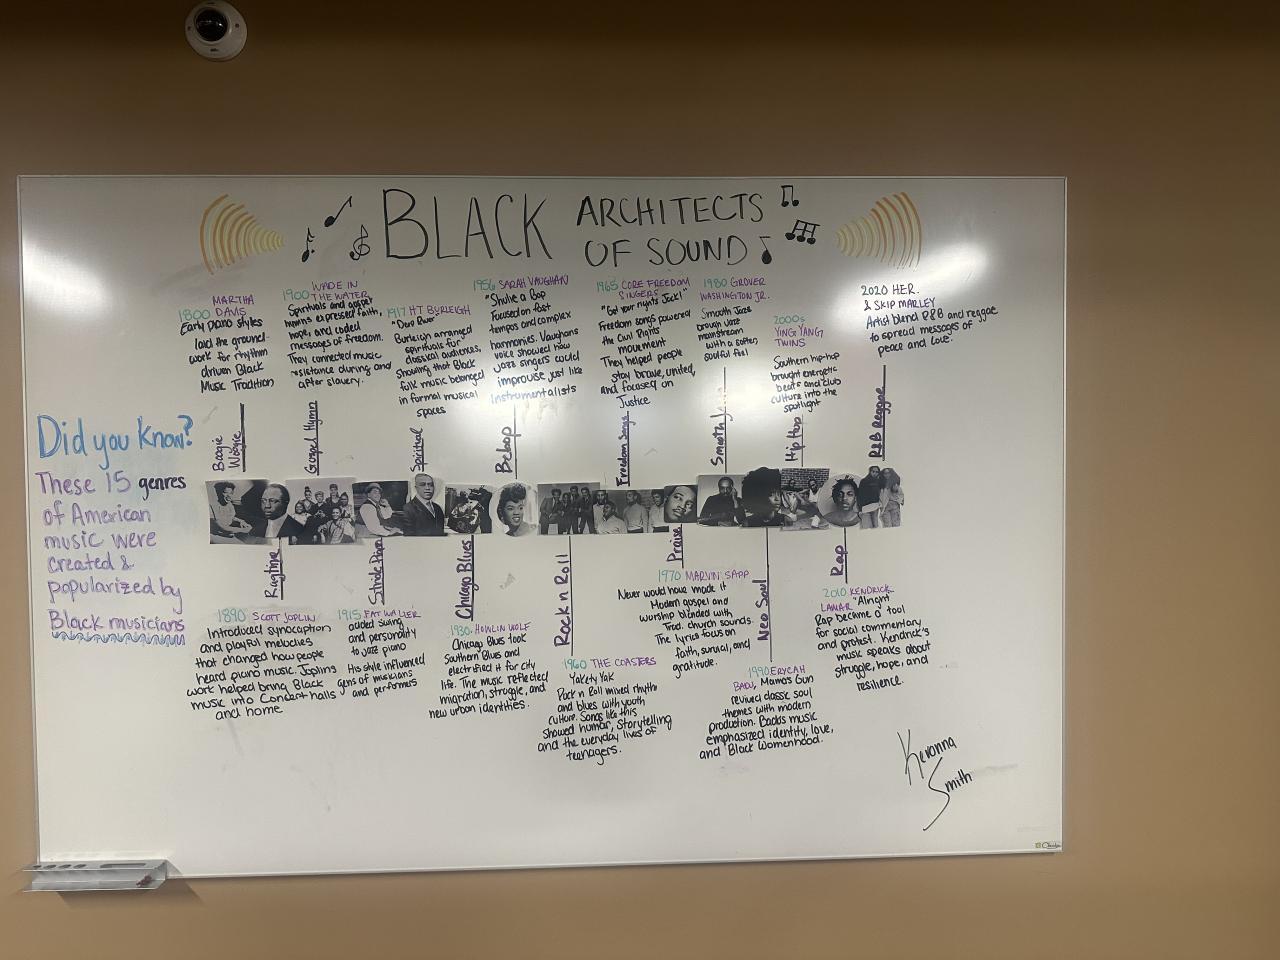 BLACK ARCHITECTS
OF SOUND
Did you know?
These 15 genres
of American
music were
created &
popularized by
Black musicians
1800 MARTHA
DAVIS
Early piano styles
laid the ground-
work for rhythm
driven Black
Music Tradition
Boogie
Woogie
1900 WADE IN
THE WATER
Spirituals and gospel
hymns expressed faith,
hope, and coded
messages of freedom.
They connected music
resistance during and
after slavery.
Gospel Hymn
1917 HT BURLEIGH
"Deep River"
Burleigh arranged
spirituals for
classical audiences,
Showing that Black
folk music belonged
in formal musical
spaces
Spiritual
1956 SARAH VAUGHAN
"Shulie a Bop
Focused on fast
tempos and complex
harmonies. Vaughans
voice showed how
jazz singers could
improvise just like
Instrumentalists
Bebop
1965 CORE FREEDOM
SINGERS
"Get your rights Jack!"
Freedom songs powered
the Civil Rights
movement
They helped people
stay brave, united,
and focused on
Justice
Freedom Songs
1980 GROVER
WASHINGTON JR.
Smooth Jazz
brough jazz
mainstream
with a softer,
soulful feel
Smooth
2000s
YING YANG
TWINS
Southern hip-hop
brought energetic
beats and club
culture into the
spotlight
Hip Hop
2020 HER.
& SKIP MARLEY
Artist blend R&B and reggae
to spread messages of
peace and love.
R&B Reggae
Ragtime
1890 SCOTT JOPLIN
Introduced syncopation
and playful melodies
that changed how people
heard piano music. Joplins
work helped bring Black
music into Concert halls
and home
Stride Piano
1915 FAT WALLER
added swing
and personality
to jazz piano
His style influenced
gens of musicians
and performers
Chicago Blues
1930. HOWLIN WOLF
Chicago Blues took
Southern Blues and
electrified it for city
life. The music reflected
migration, struggle, and
new urban identities.
Rock n Roll
1960 THE COASTERS
Yakety Yak
Rock n Roll mixed rhythm
and blues with youth
culture. Songs like this
showed humor, storytelling
and the everyday lives of
teenagers.
Praise
1970 MARVIN SAPP
Never would have made it
Modern gospel and
worship blended with
Trad. church sounds.
The lyrics focus on
faith, survival, and
gratitude.
Neo Soul
1990 ERYCAH
BADU, Mamas Gun
revived classic soul
themes with modern
production. Badus music
emphasized identity, love,
and Black Womenhood.
Rap
2010 KENDRICK
LAMAR "Alright
Rap became a tool
for social commentary
and protest. Kendrick's
music speaks about
struggle, hope, and
resilience.
Kevonna
Smith